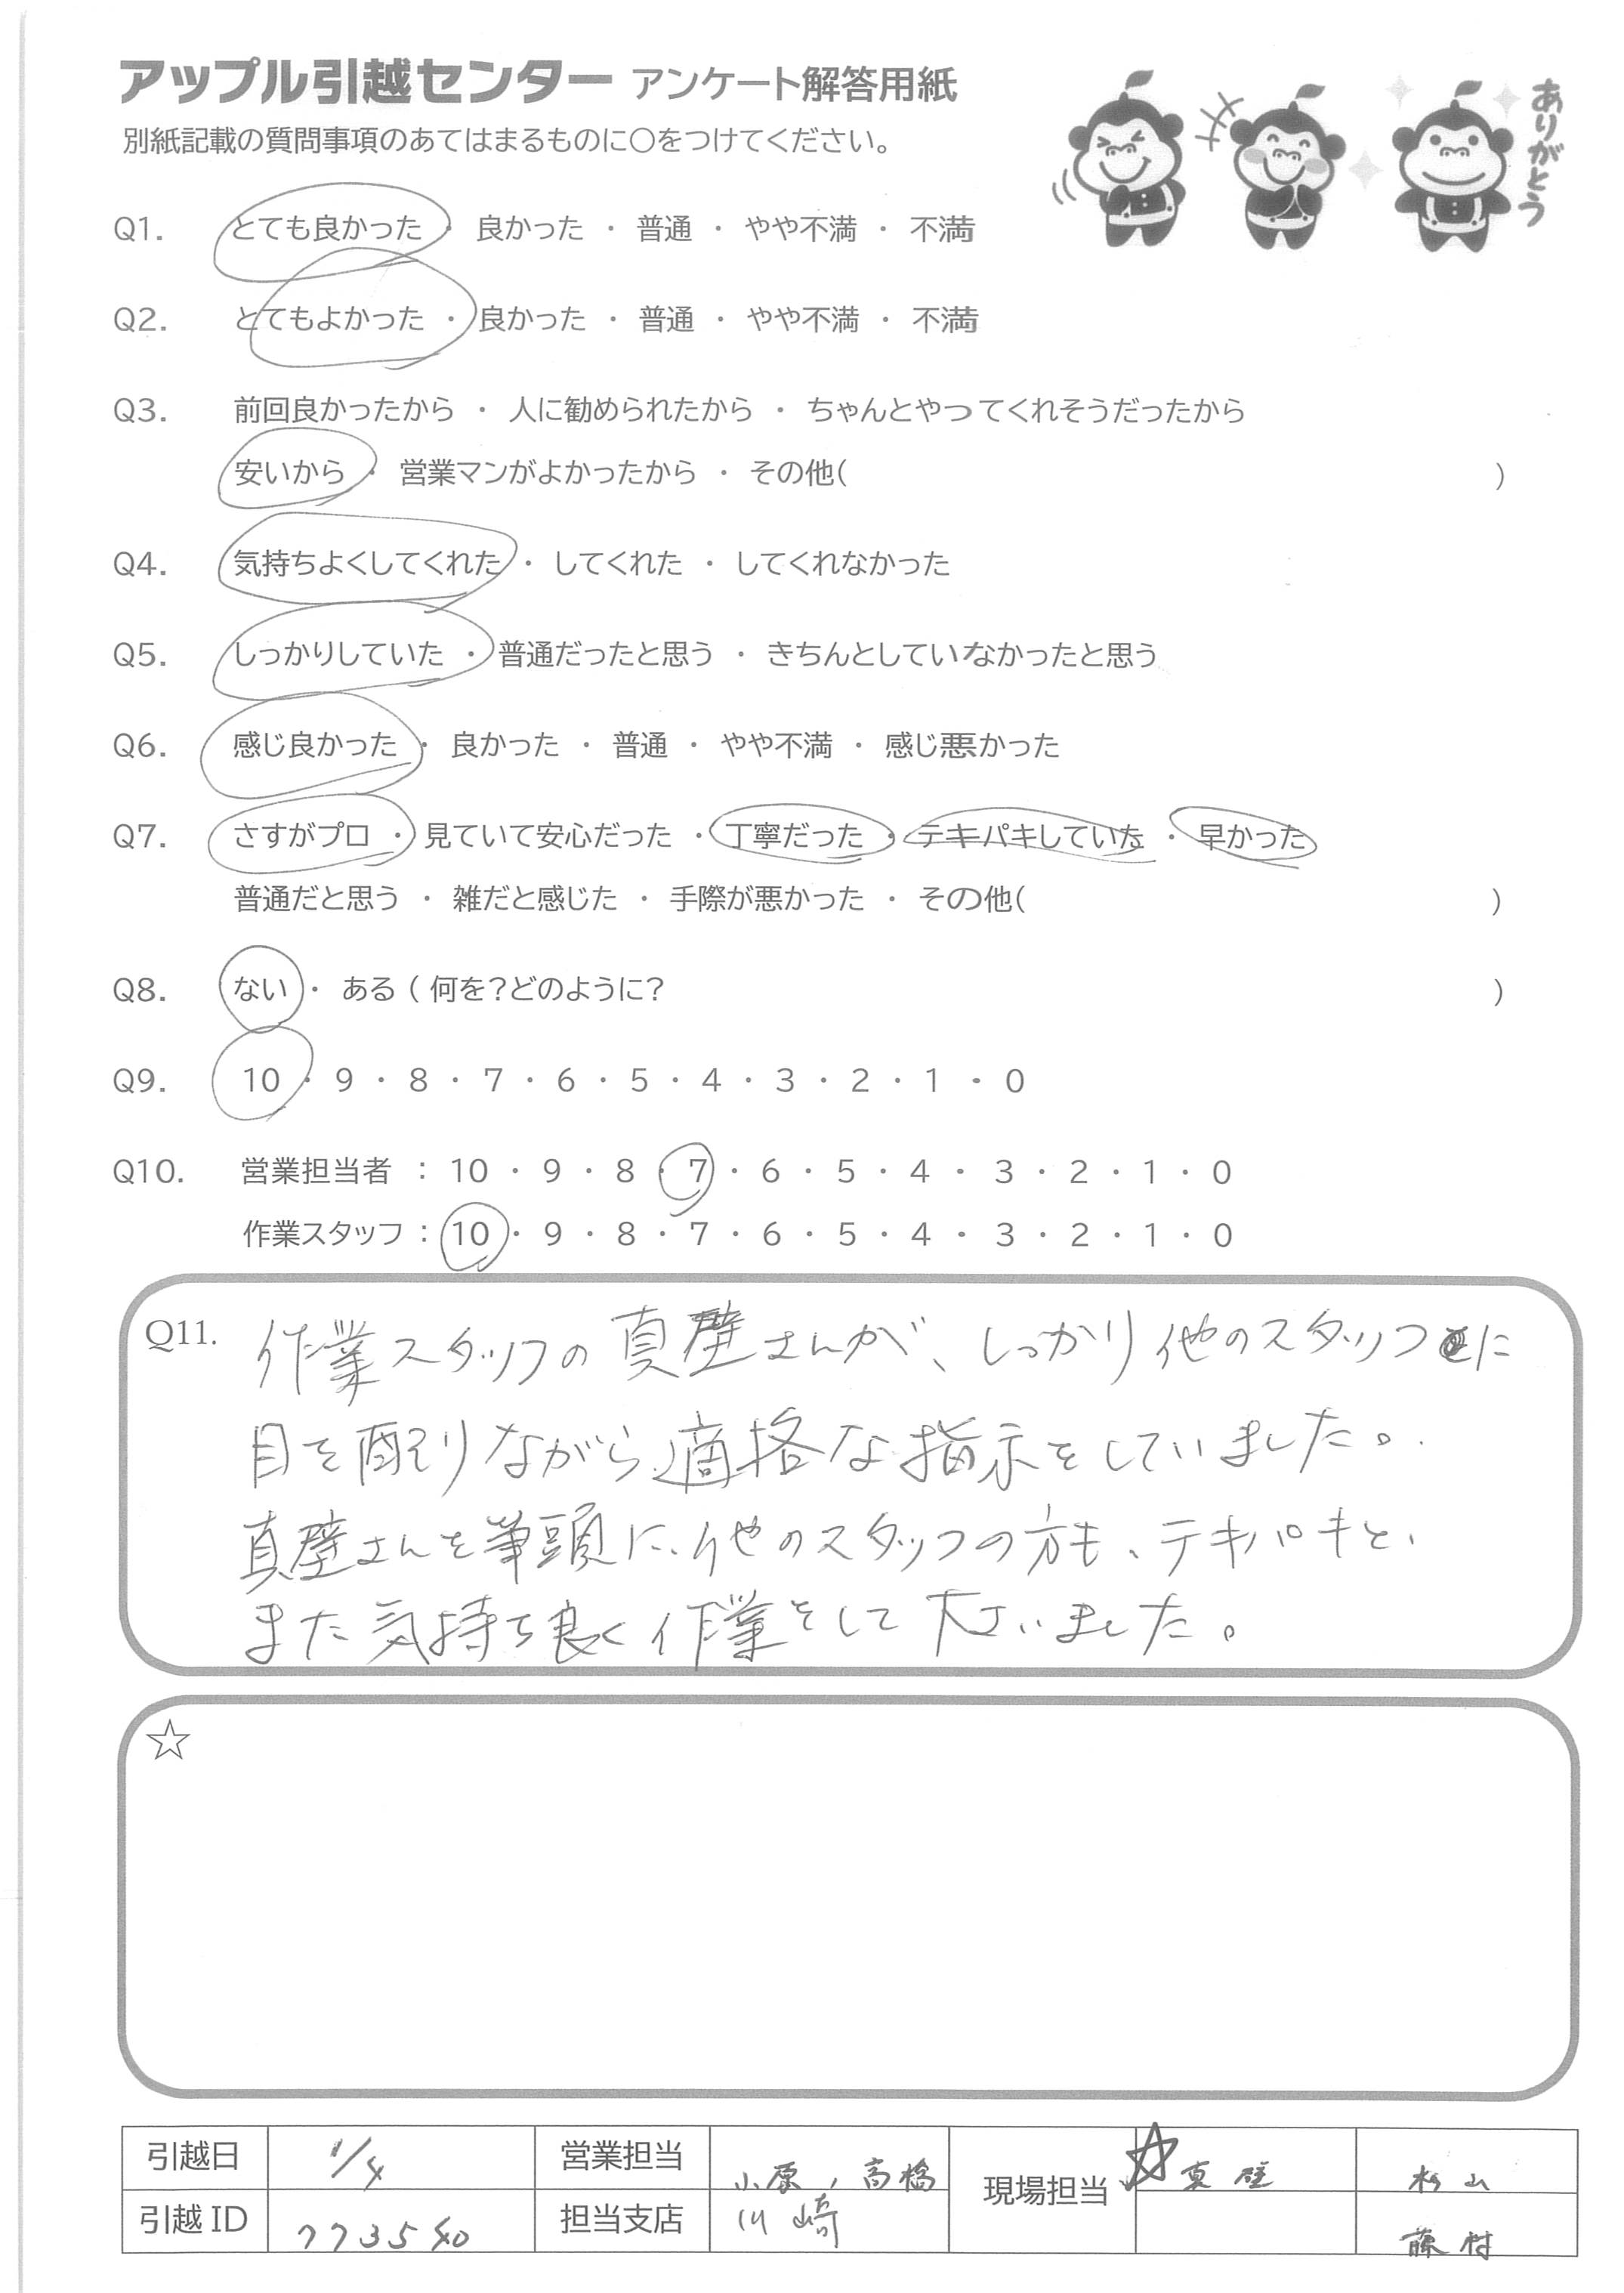 アップル引越センター アンケート解答用紙
ありがとう
別紙記載の質問事項のあてはまるものに○をつけてください。
Q1. とても良かった ・ 良かった ・ 普通 ・ やや不満 ・ 不満
Q2. とてもよかった ・ 良かった ・ 普通 ・ やや不満 ・ 不満
Q3. 前回良かったから ・ 人に勧められたから ・ ちゃんとやってくれそうだったから
安いから ・ 営業マンがよかったから ・ その他( )
Q4. 気持ちよくしてくれた ・ してくれた ・ してくれなかった
Q5. しっかりしていた ・ 普通だったと思う ・ きちんとしていなかったと思う
Q6. 感じ良かった ・ 良かった ・ 普通 ・ やや不満 ・ 感じ悪かった
Q7. さすがプロ ・ 見ていて安心だった ・ 丁寧だった ・ テキパキしていた ・ 早かった
普通だと思う ・ 雑だと感じた ・ 手際が悪かった ・ その他( )
Q8. ない ・ ある ( 何を?どのように? )
Q9. 10 ・ 9 ・ 8 ・ 7 ・ 6 ・ 5 ・ 4 ・ 3 ・ 2 ・ 1 ・ 0
Q10. 営業担当者 : 10 ・ 9 ・ 8 ・ 7 ・ 6 ・ 5 ・ 4 ・ 3 ・ 2 ・ 1 ・ 0
作業スタッフ : 10 ・ 9 ・ 8 ・ 7 ・ 6 ・ 5 ・ 4 ・ 3 ・ 2 ・ 1 ・ 0
Q11. 作業スタッフの真壁さんが、しっかり他のスタッフに
目を配りながら適格な指示をしていました。
真壁さんを筆頭に、他のスタッフの方も、テキパキと、
また気持ち良く作業をして下さいました。
☆
引越日 1/4 営業担当 小原,高橋 現場担当 ☆真壁 杉山
引越ID 773540 担当支店 川崎 藤村